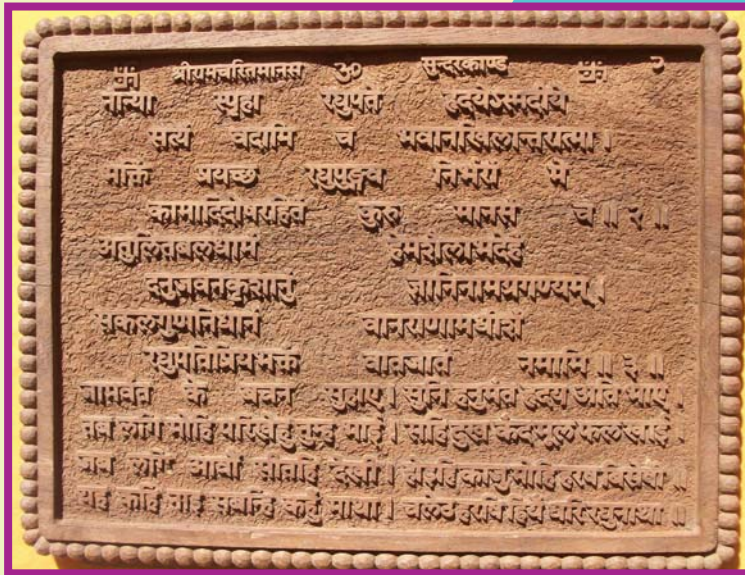 卐 श्रीरामचरितमानस ॐ सुन्दरकाण्ड 卐 २
नान्या स्पृहा रघुपते हृदयेऽस्मदीये
सत्यं वदामि च भवानखिलान्तरात्मा ।
भक्तिं प्रयच्छ रघुपुङ्गव निर्भरां मे
कामादिदोषरहितं कुरु मानसं च ॥ २ ॥
अतुलितबलधामं हेमशैलाभदेहं
दनुजवनकृशानुं ज्ञानिनामग्रगण्यम् ।
सकलगुणनिधानं वानराणामधीशं
रघुपतिप्रियभक्तं वातजातं नमामि ॥ ३ ॥
जामवंत के बचन सुहाए । सुनि हनुमंत हृदय अति भाए ।
तब लगि मोहि परिखेहु तुम्ह भाई । सहि दुख कंद मूल फल खाई ।
जब लगि आवौं सीतहि देखी । होइहि काजु मोहि हरष बिसेषी ॥
यह कहि नाइ सबन्हि कहुँ माथा । चलेउ हरषि हियँ धरि रघुनाथा ॥